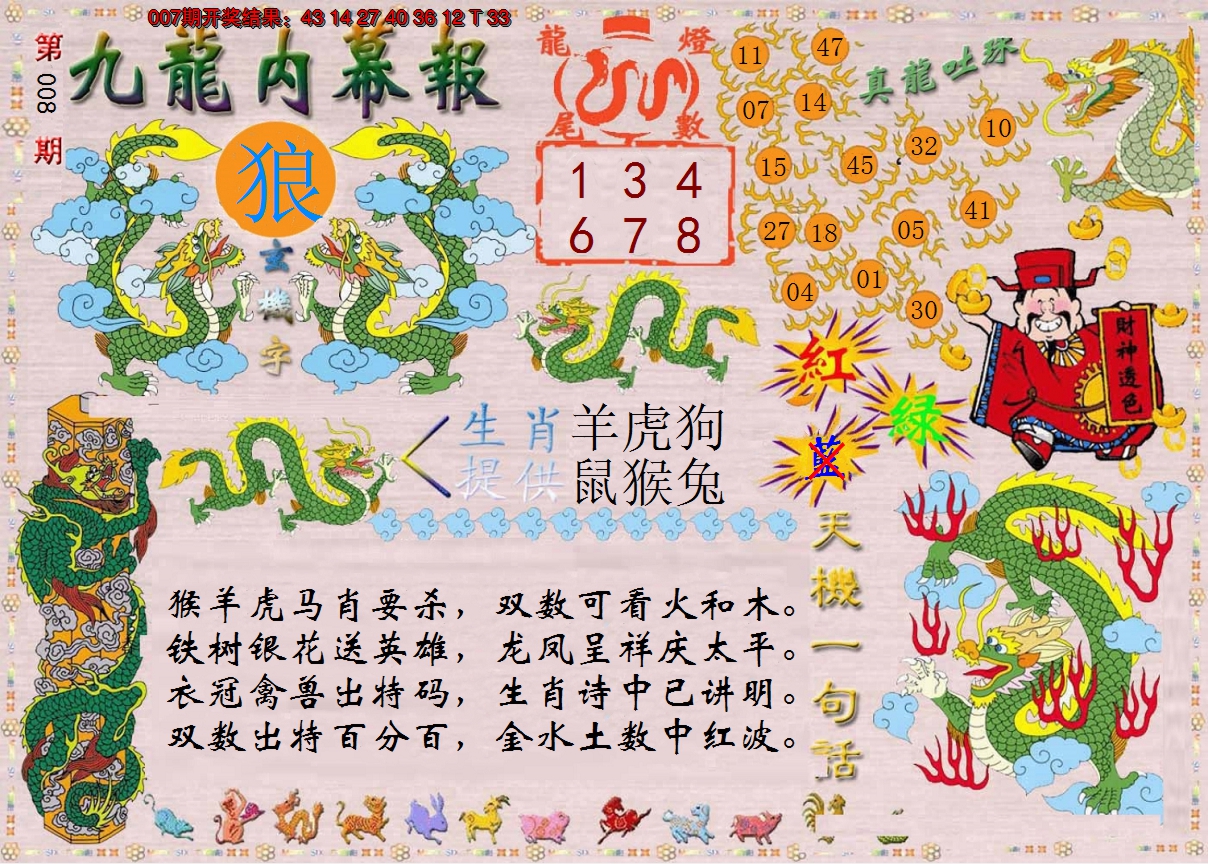 007期开奖结果：43 14 27 40 36 12 T 33
第008期
九龍内幕報
狼
玄機字
龍燈尾數
1 3 4
6 7 8
真龍吐珠
11 47
07 14
15 45 32 10
27 18 05 41
04 01 30
財神透色
紅
绿
蓝
生肖提供
羊虎狗
鼠猴兔
猴羊虎马肖要杀，双数可看火和木。
铁树银花送英雄，龙凤呈祥庆太平。
衣冠禽兽出特码，生肖诗中已讲明。
双数出特百分百，金水土数中红波。
天機一句话